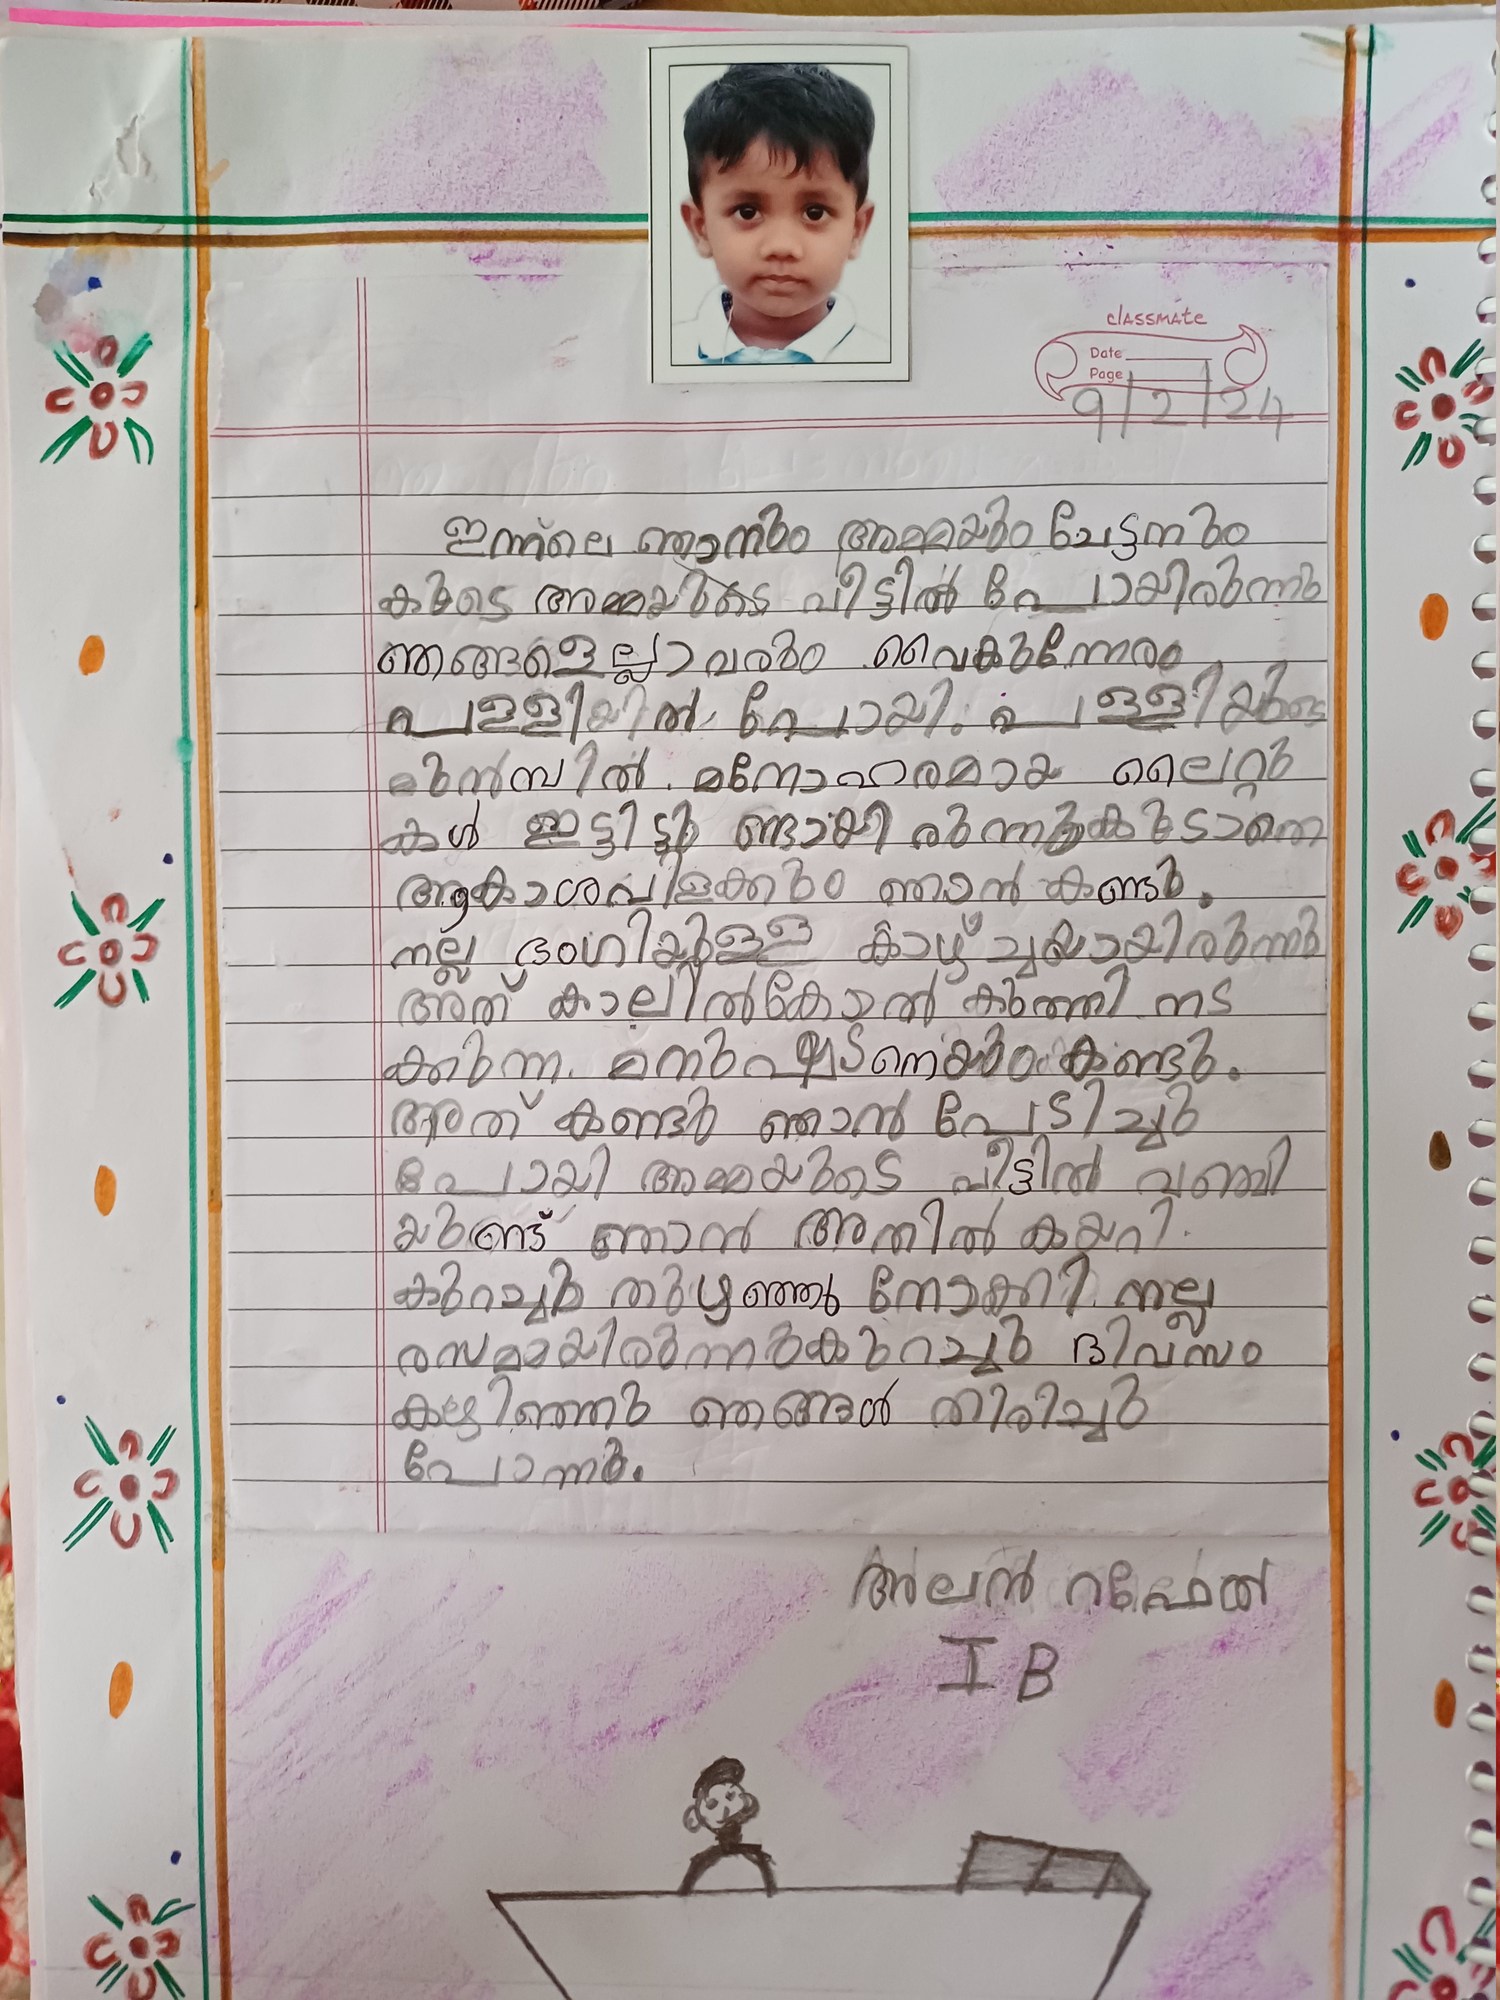 classmate
Date
Page
9/2/24
ഇന്ന്ലെ ഞാനും അമ്മയും ചേട്ടനും
കുടെ അമ്മയുടെ വീട്ടിൽ പോയിരുന്നു
ഞങ്ങളെല്ലാവരും വൈകുന്നേരം
പള്ളിയിൽ പോയി. പള്ളിയുടെ
മുൻമ്പിൽ മനോഹരമായ ലൈറ്റു
കൾ ഇട്ടിട്ടു ണ്ടായി രുന്നുകുടാതെ
ആകാശവിളക്കും ഞാൻ കണ്ടു.
നല്ല ഭംഗിയുള്ള കാഴ്ച്ചയായിരുന്നു
അത് കാലിൽകോൽ കുത്തി നട
ക്കുന്ന മനുഷ്യനെയും കണ്ടു.
അത് കണ്ടു ഞാൻ പേടിച്ചു
പോയി അമ്മയുടെ വീട്ടിൽ വഞ്ചി
യുണ്ട് ഞാൻ അതിൽ കയറി.
കുറച്ചു തുഴഞ്ഞു നോക്കി നല്ല
രസമായിരുന്നുകുറച്ചു ദിവസം
കഴിഞ്ഞു ഞങ്ങൾ തിരിച്ചു
പോന്നു.
അലൻ റഫേൽ
I B